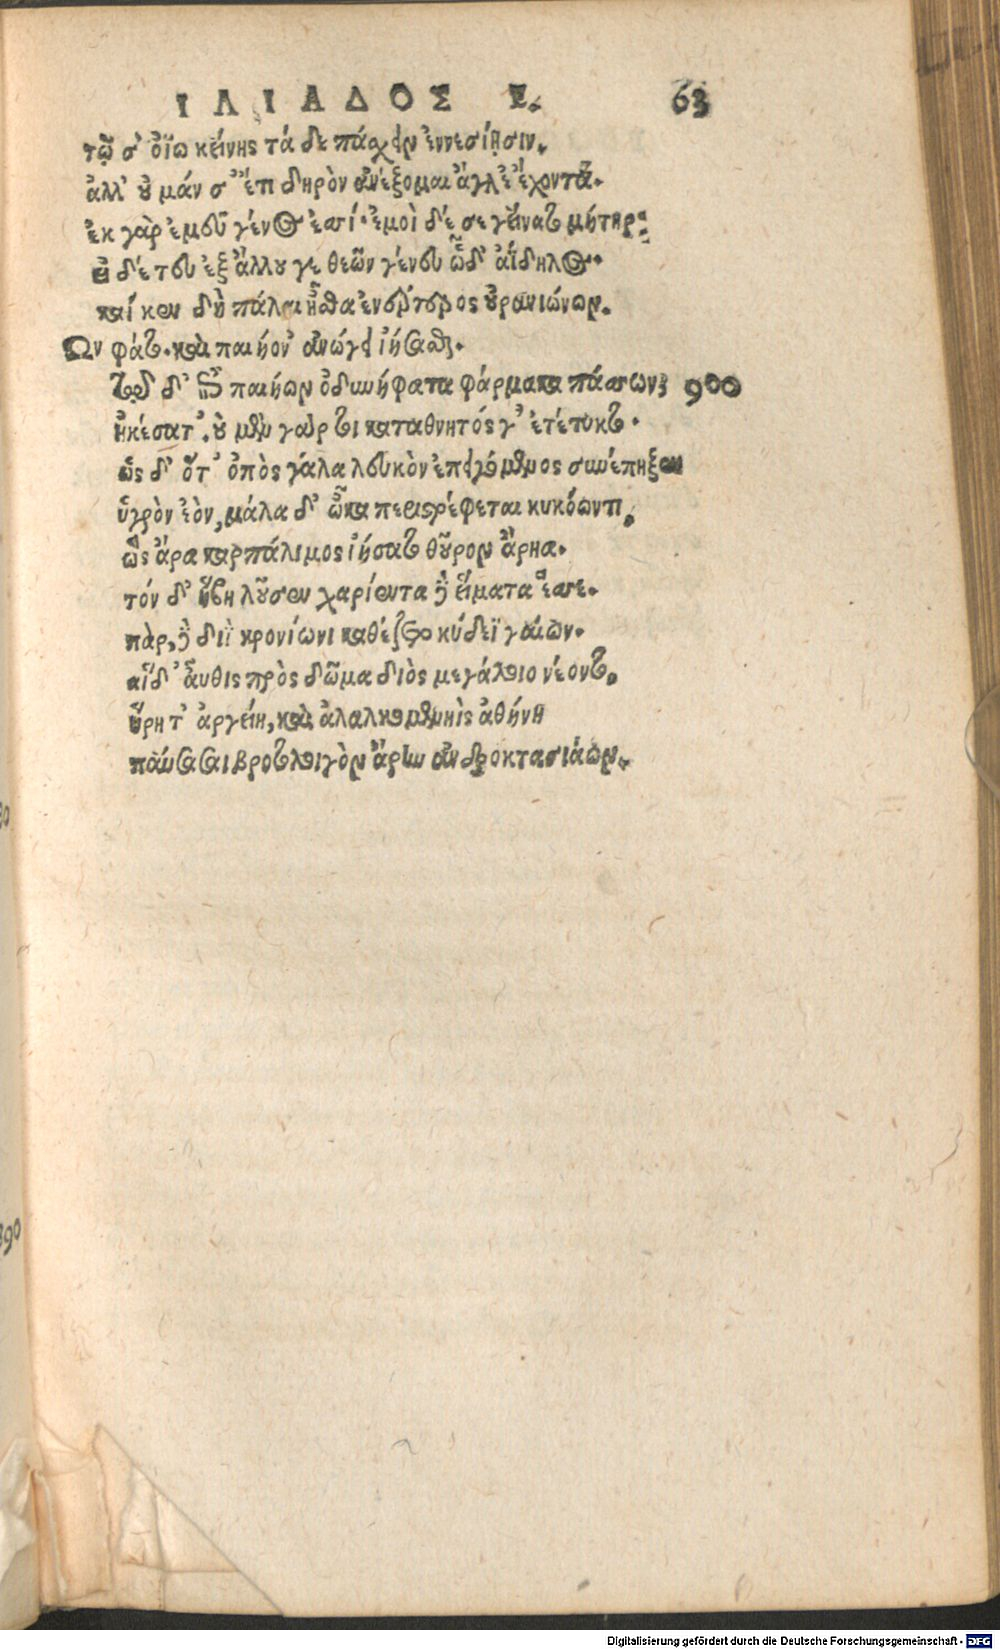 ΙΛΙΑΔΟΣ Ε. 63
τῷ σ' ὀΐω κείνης τά δε πάσχειν ἐννεσίῃσιν.
ἀλλ' οὐ μάν σ' ἔτι δηρὸν ἀνέξομαι ἄγλε' ἔχοντα.
ἐκ γὰρ ἐμεῦ γένος ἐσσί· ἐμοὶ δέ σε γείνατο μήτηρ.
εἰ δέ τευ ἐξ ἄλλου γε θεῶν γένευ ὧδ' ἀΐδηλος.
καί κεν δὴ πάλαι ἦσθα ἐνέρτερος οὐρανιώνων.
Ως φάτο. καὶ παιήον' ἀνώγει ἰήσασθαι.
τῷ δ' ἐπὶ παιήων ὀδυνήφατα φάρμακα πάσσων 900
ἠκέσατ'. οὐ μὲν γάρ τι καταθνητός γ' ἐτέτυκτο.
ὡς δ' ὅτ' ὀπὸς γάλα λευκὸν ἐπειγόμενος συνέπηξεν
ὑγρὸν ἐὸν, μάλα δ' ὦκα περιστρέφεται κυκόωντι,
ὣς ἄρα καρπάλιμος ἰήσατο θοῦρον ἄρηα.
τόν δ' ἥβη λοῦσεν χαρίεντα δὲ εἵματα ἕσσε.
πὰρ, δὲ διῒ κρονίωνι καθέζετο κύδεϊ γαίων.
αἵδ' αὖθις πρὸς δῶμα διὸς μεγάλοιο νέοντο,
ἥρη τ' ἀργείη, καὶ ἀλαλκομενηῒς ἀθήνη
παύσασαι βροτολοιγὸν ἄρην ἀνδροκτασιάων.
30
890
Digitalisierung gefördert durch die Deutsche Forschungsgemeinschaft - DFG